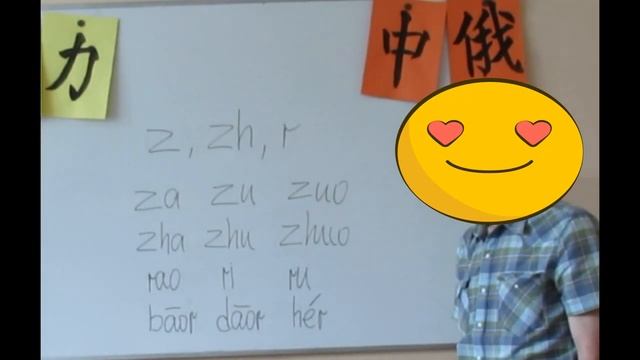 力 中 俄
z, zh, r
za zu zuo
zha zhu zhuo
rao ri ru
bāor dāor hér